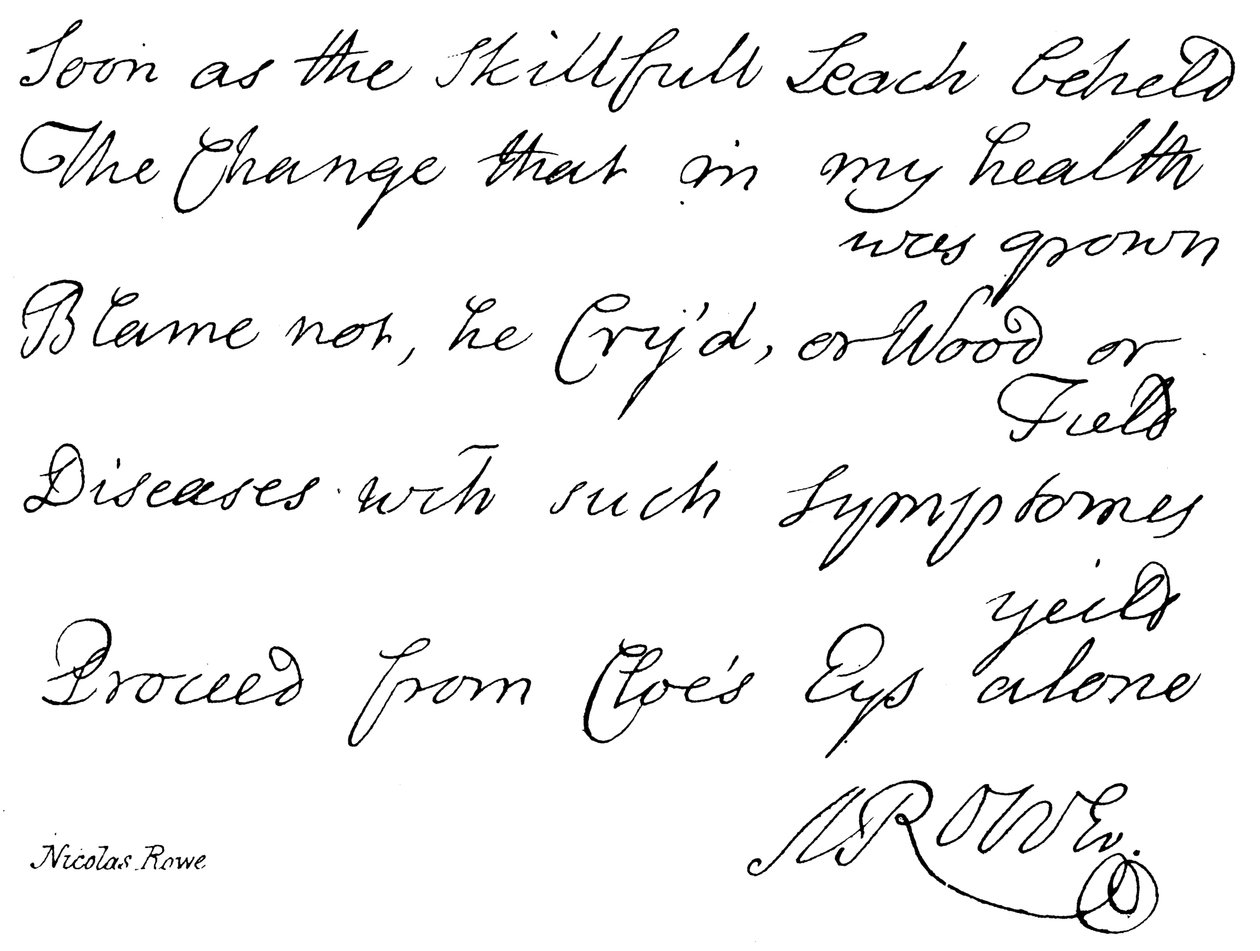 Soon as the Skillfull Leach beheld
The Change that in my health
was grown
Blame not, he Cry'd, or Wood or
Field
Diseases wth such Symptomes
yeild
Proceed from Cloe's Eys alone
N ROWE.
Nicolas Rowe